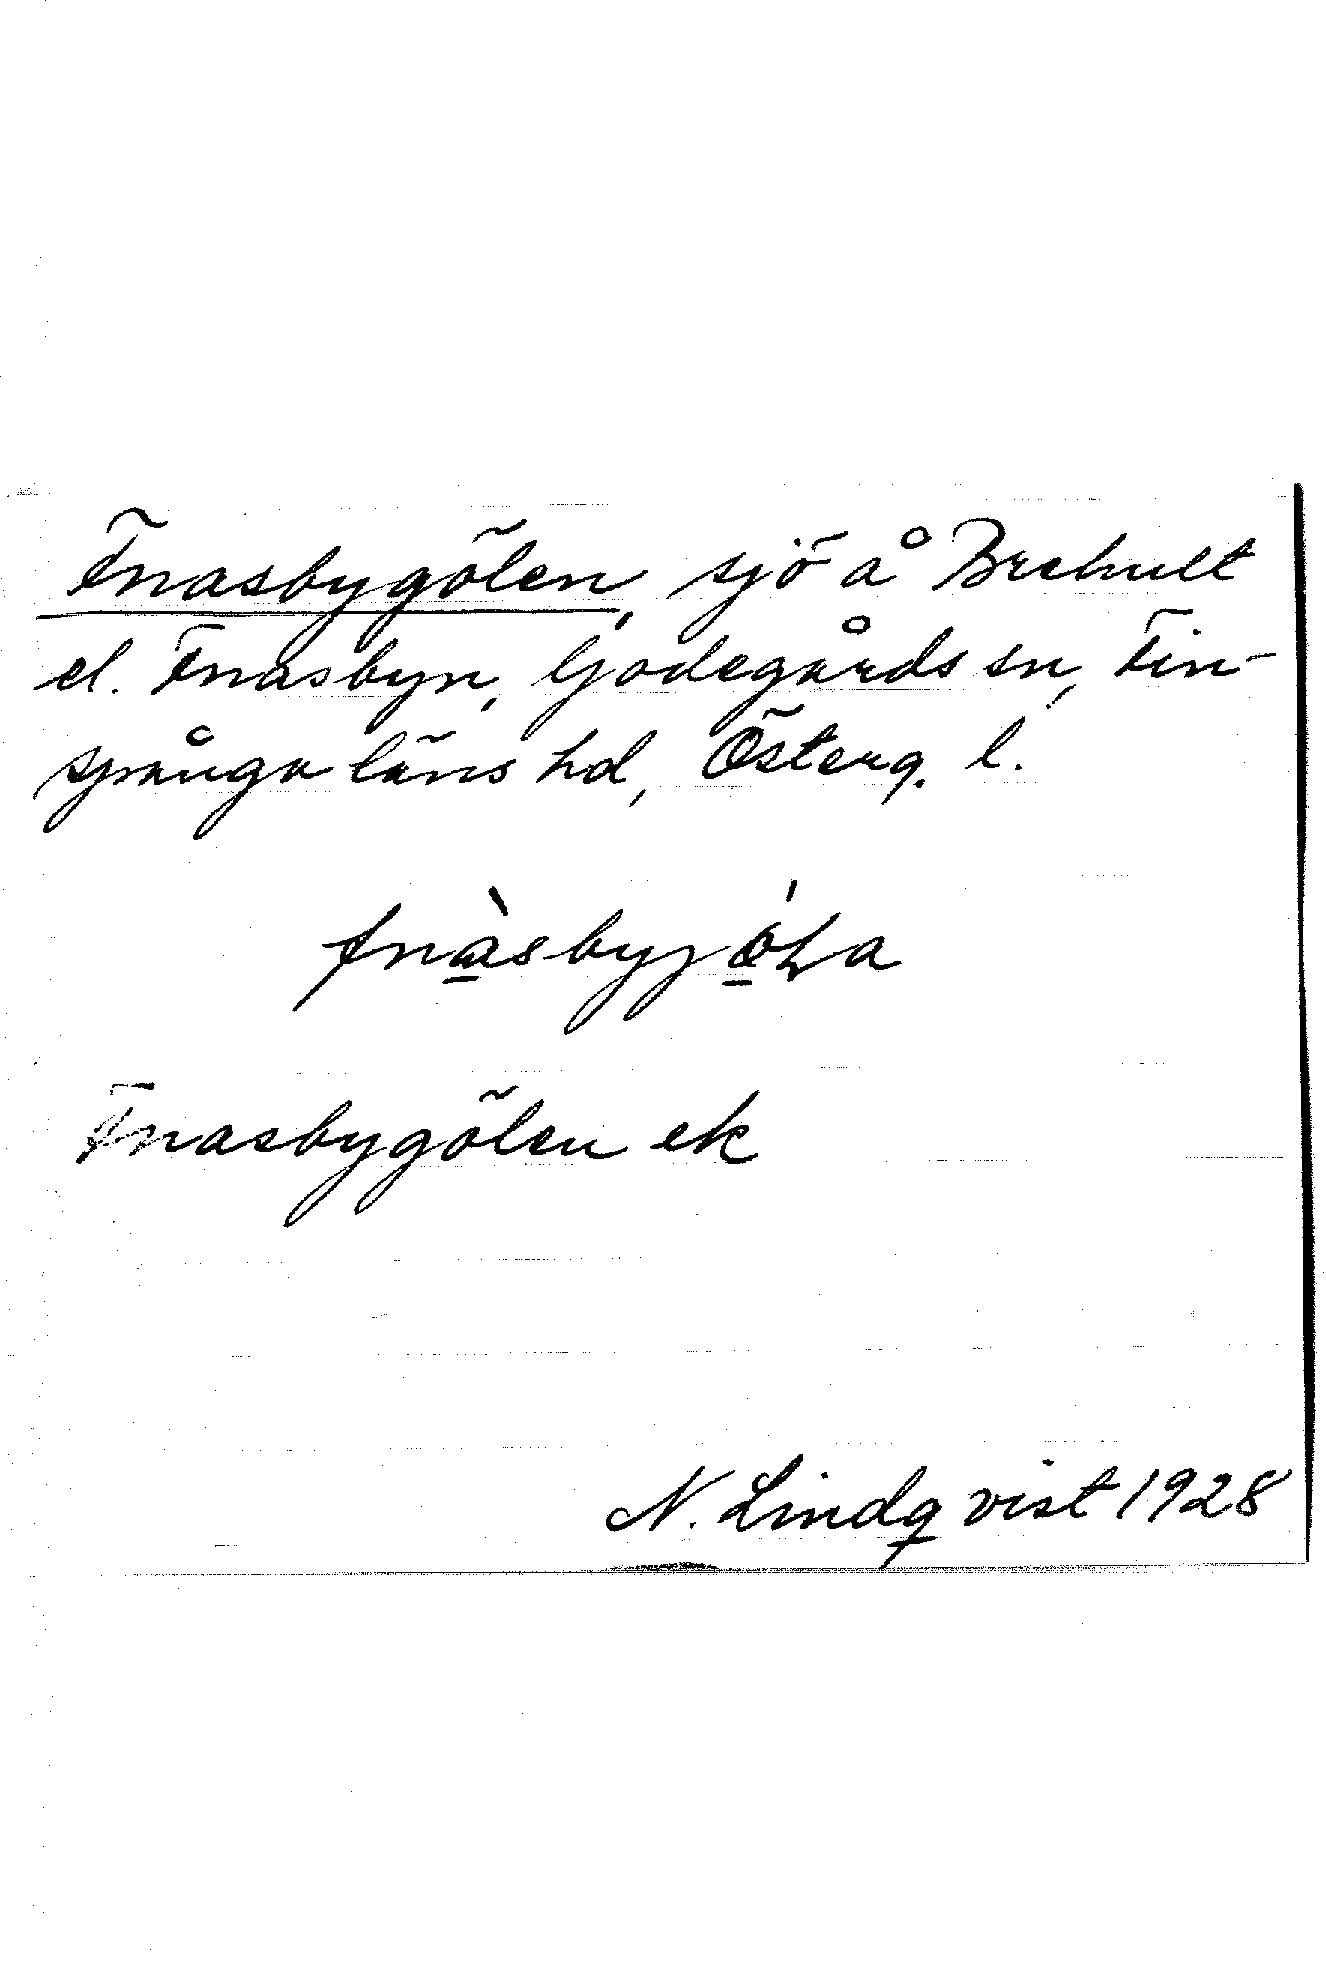 Fnasbygölen, sjö å Brehult
el. Fnasbyn, Godegårds sn, Fin-
spånga läns hd, Österg. l.
fnàsbyjǿLa
Fnasbygölen ek
N. Lindqvist 1928